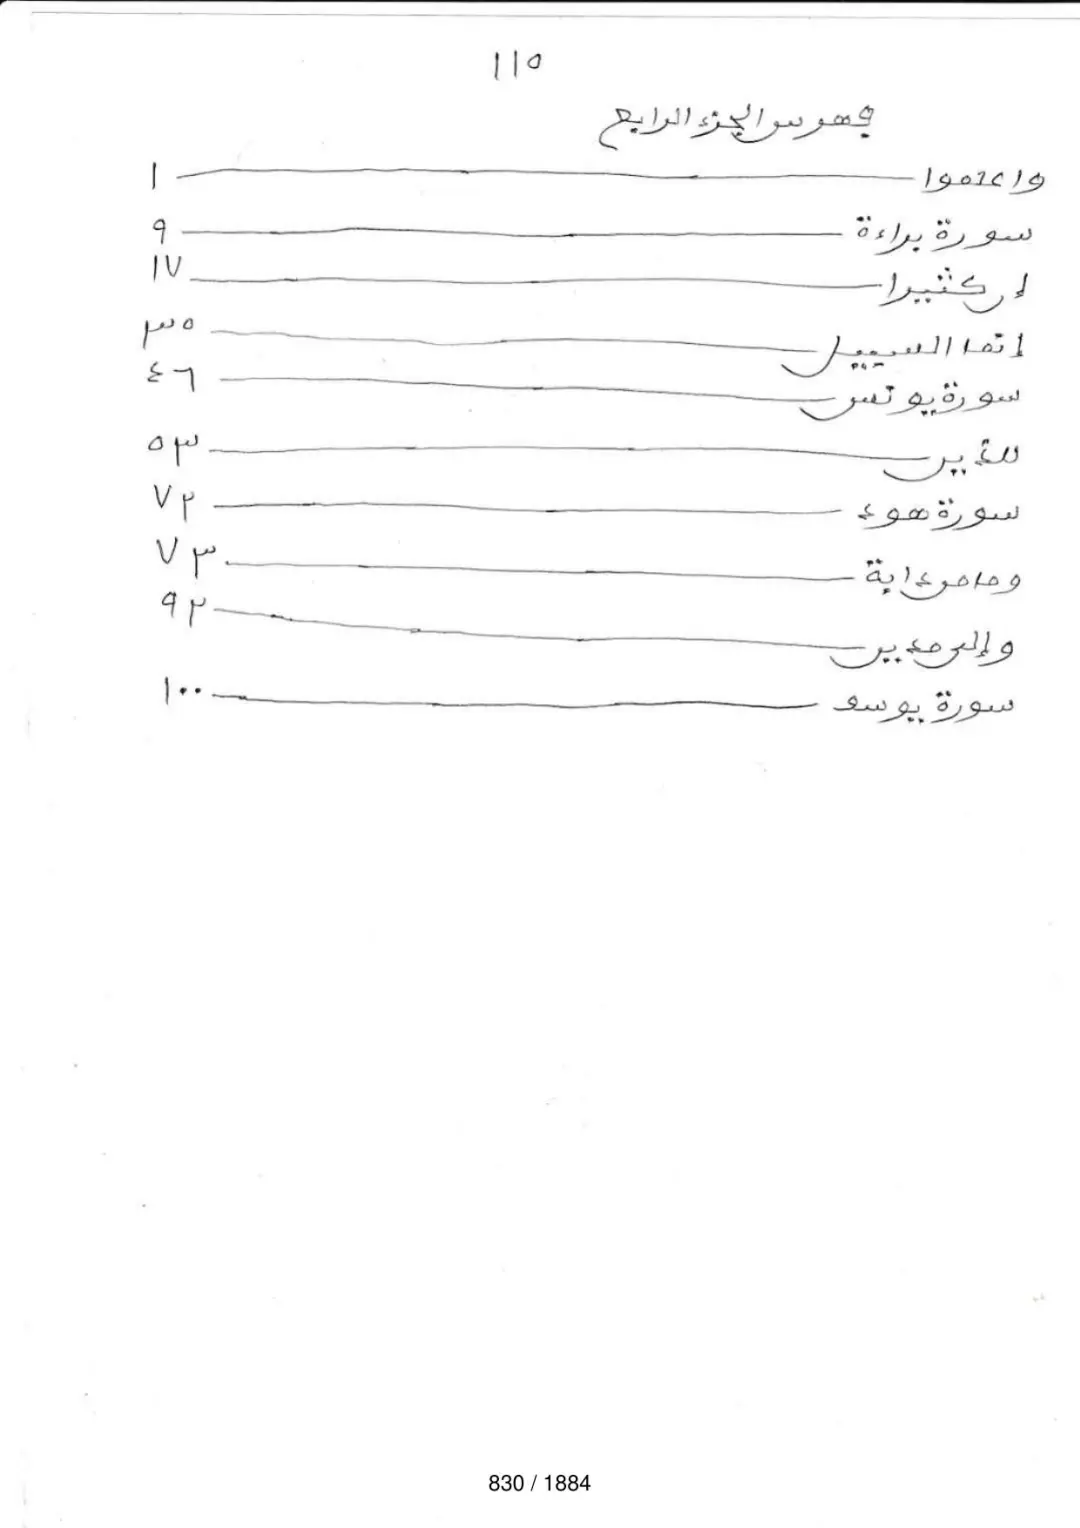 ١١٥
فهرس الجزء الرابع
واعلموا ١
سورة براءة ٩
إن كثيرا ١٧
إنما السبيل ٣٥
سورة يونس ٤٦
للذين ٥٣
سورة هود ٧٢
وما من دابة ٧٣
وإلى مدين ٩٢
سورة يوسف ١٠٠
830 / 1884